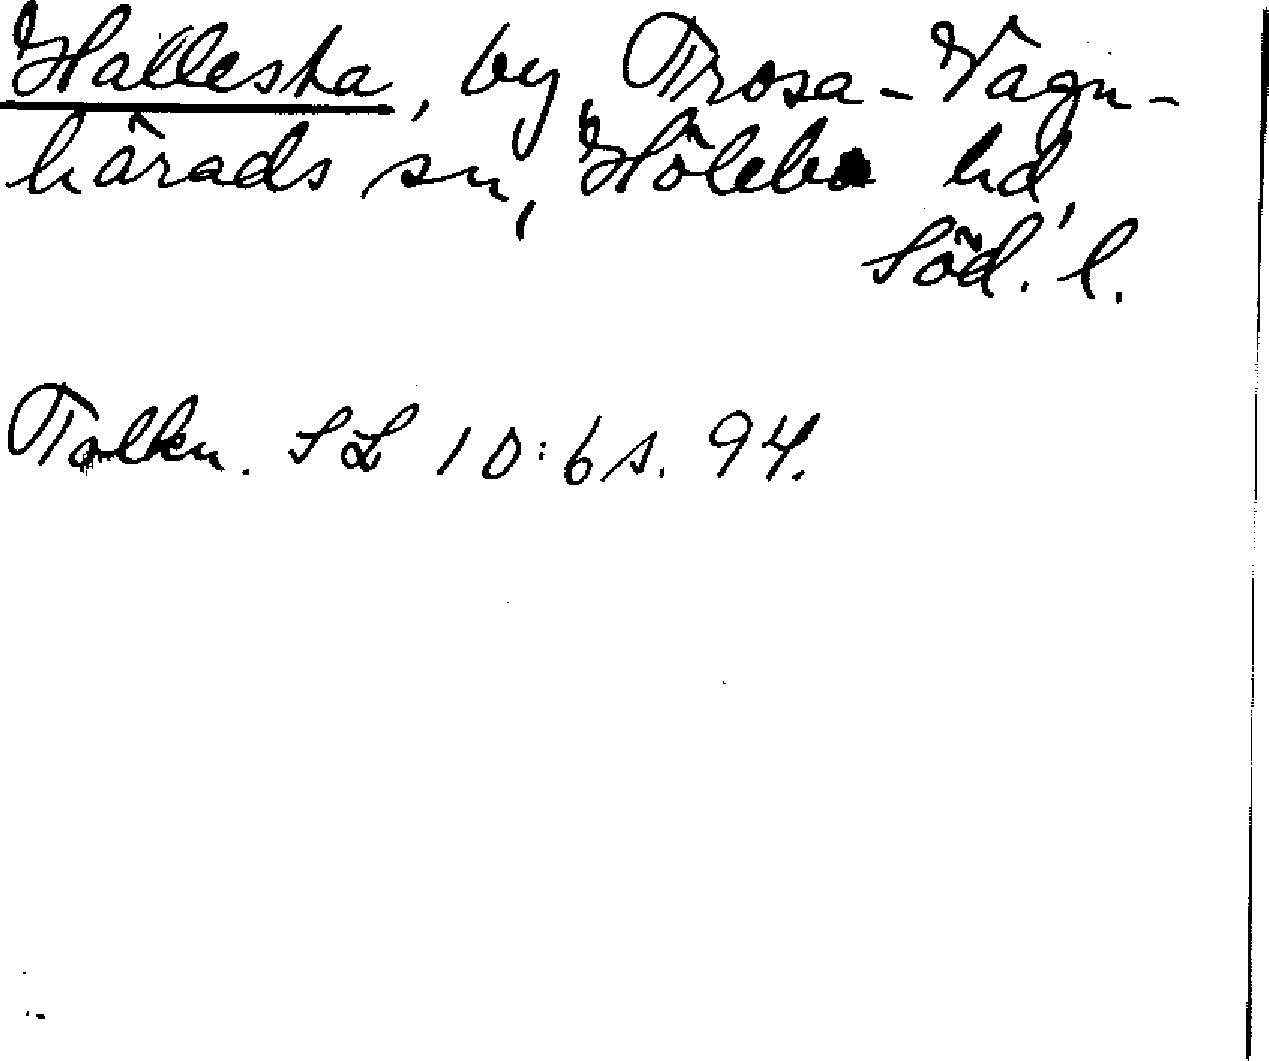 Hallesta, by, Trosa-Vagn-
härads sn, Hölebo hd,
Söd. l.
Tolkn. SL 10:6 s. 94.